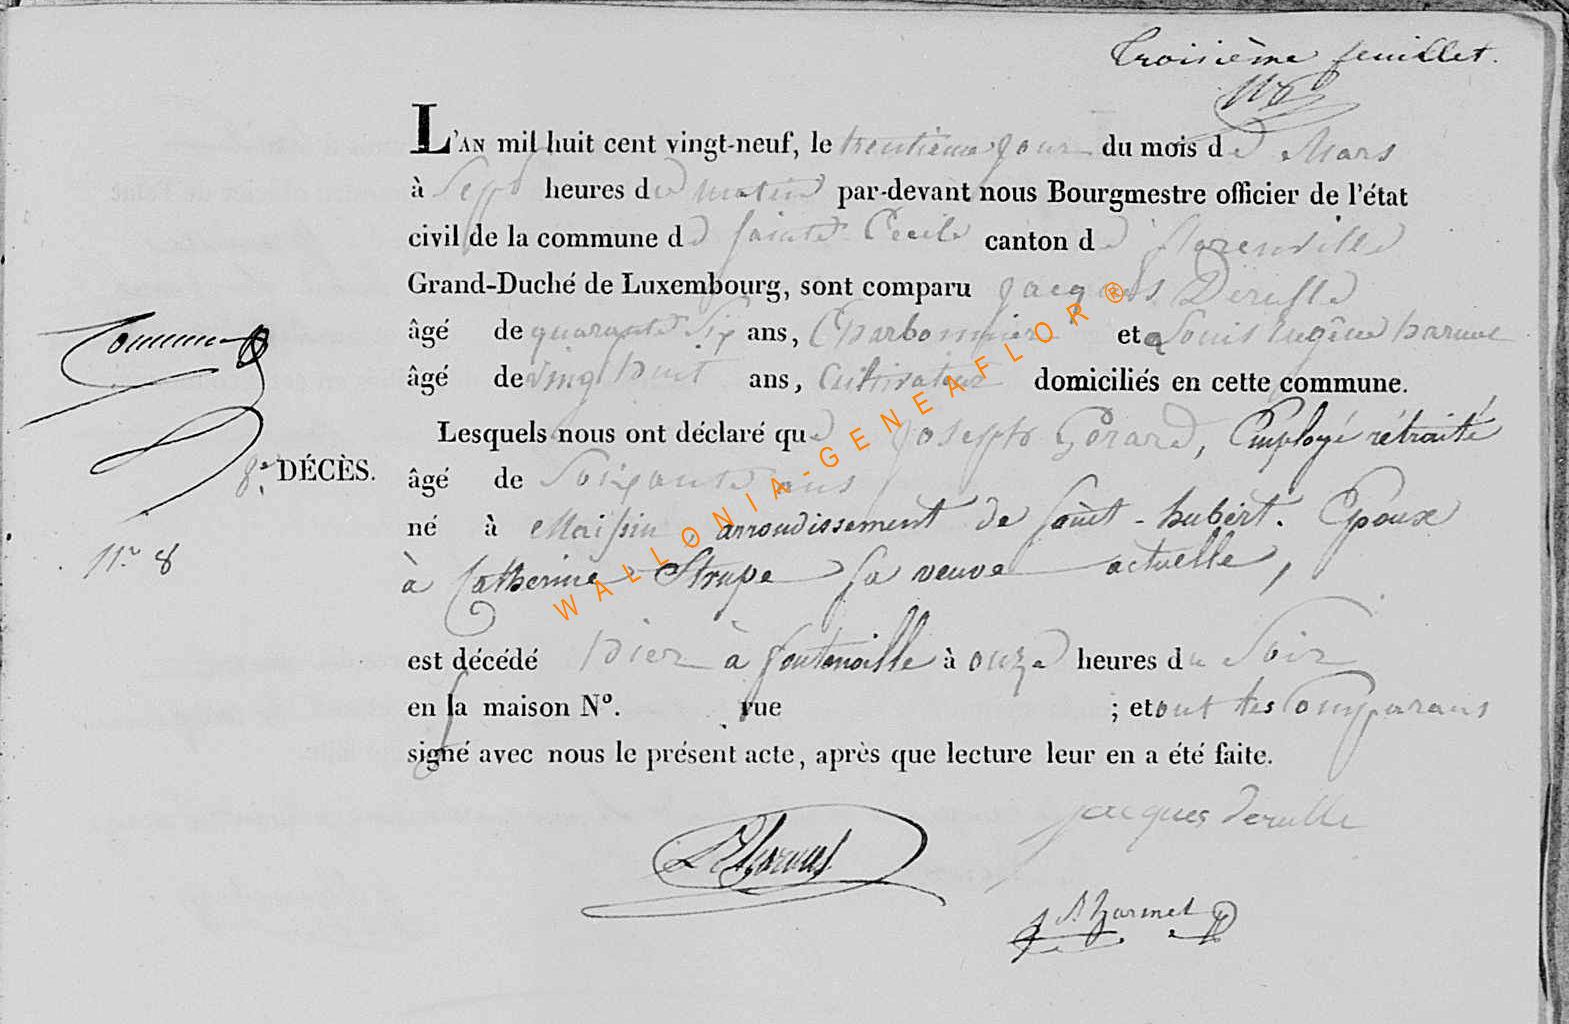 Troisième feuillet.
L'AN mil huit cent vingt-neuf, le trentième jour du mois de Mars
à Sept heures du matin par-devant nous Bourgmestre officier de l'état
civil de la commune de Sainte Cecile canton de florenville
Grand-Duché de Luxembourg, sont comparu Jacques Derulle
âgé de quarante Six ans, Charbonnier et Louis Eugène
âgé de vingt huit ans, Cultivateur domiciliés en cette commune.
Lesquels nous ont déclaré que Joseph Gérard, Employé rétraité
8e DÉCÈS. âgé de Soixante ans
né à Maissin, arrondissement de Saint-hubert. Epoux
N.° 8
à Catherine Strupe Sa veuve actuelle,
est décédé hier à fontenoille à onze heures du Soir
en la maison N°. rue ; et ont les Comparans
signé avec nous le présent acte, après que lecture leur en a été faite.
Jacques Derulle
WALLONIA-GENEAFLOR®